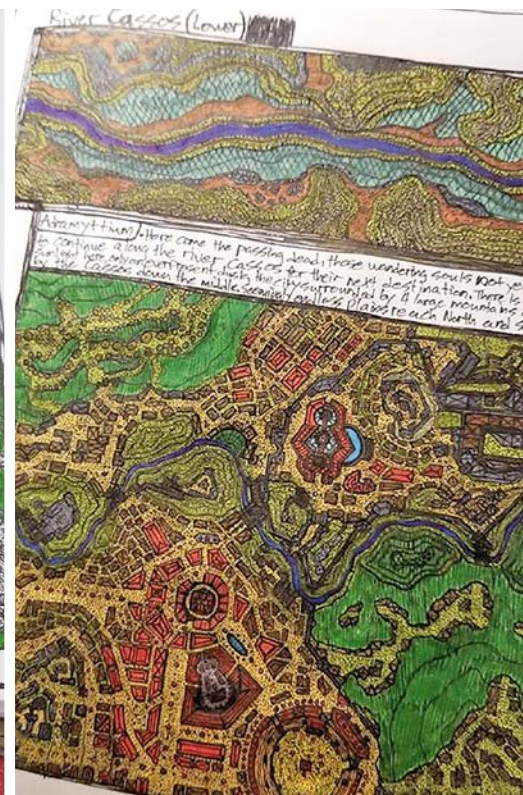 River Cassos (Lower)
Adramyttium. Here come the passing dead, those wandering souls not
to continue along the river Cassos for their next destination. There is
here, only present dusk, the city surrounded by 4 large mountains
by the Cassos down the middle, seemingly endless plains reach North and